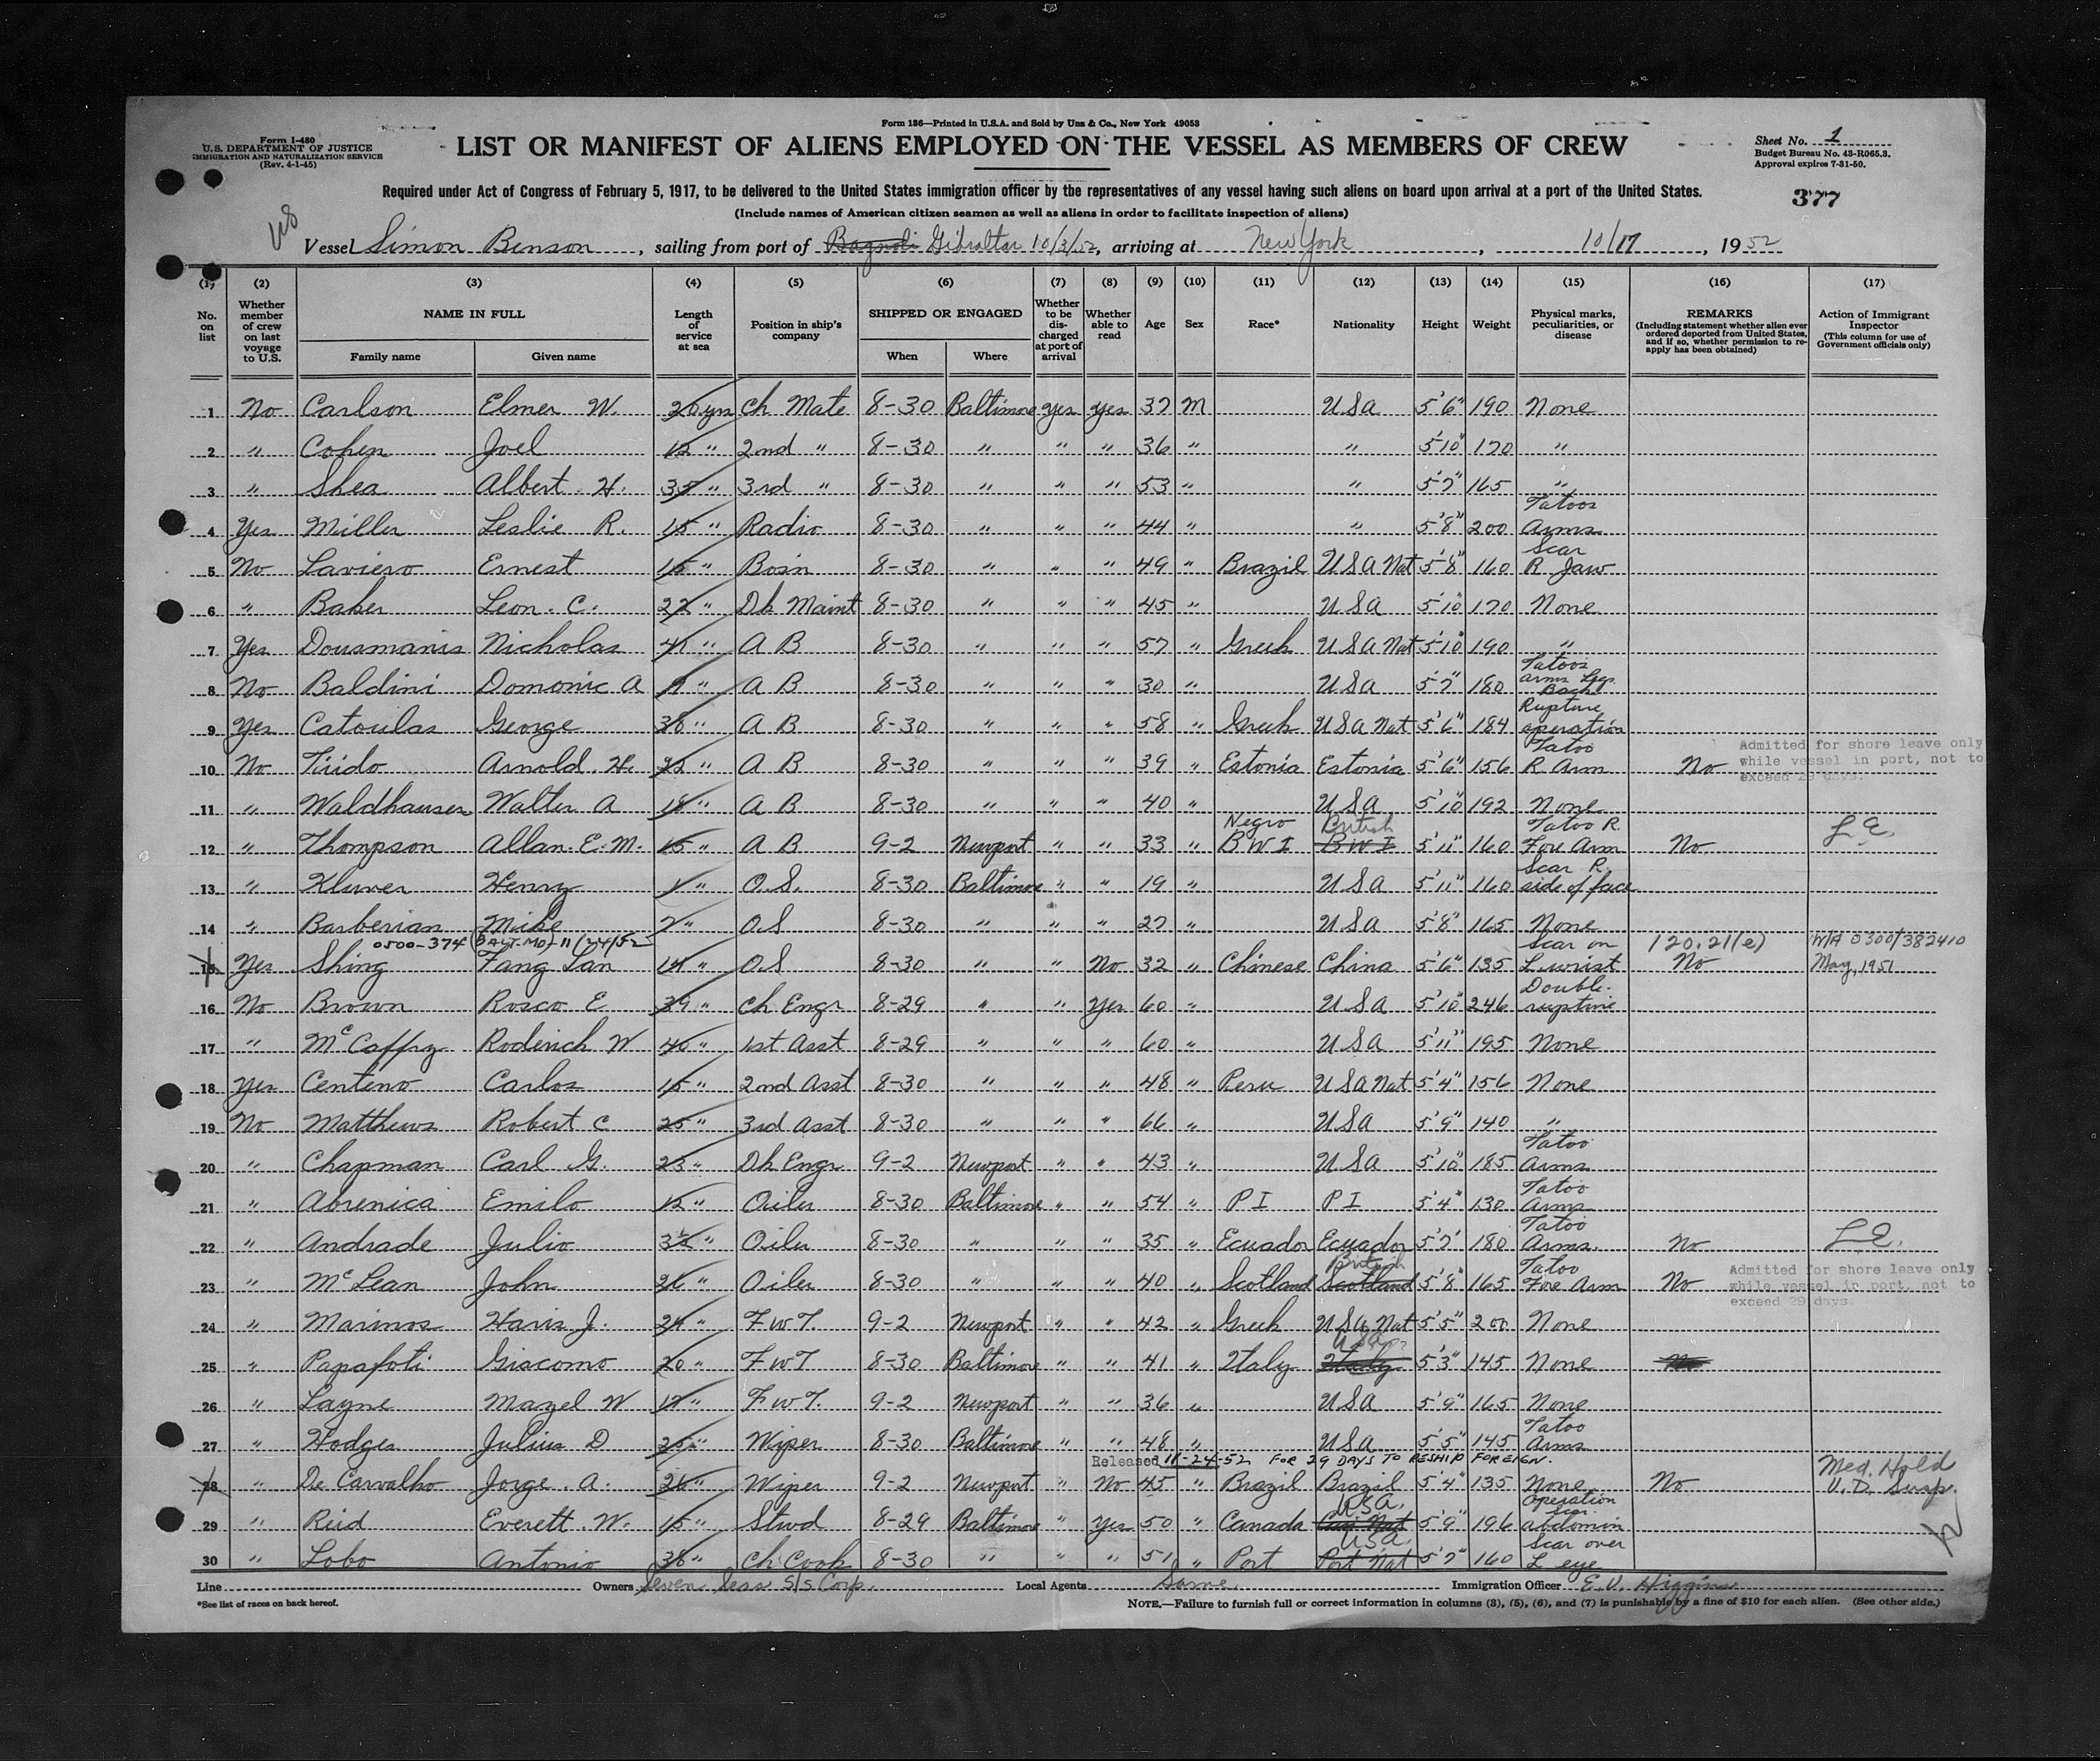 Form 136—Printed in U.S.A. and Sold by Unz & Co., New York 49053
Form I-480
U.S. DEPARTMENT OF JUSTICE
IMMIGRATION AND NATURALIZATION SERVICE
(Rev. 4-1-45)
LIST OR MANIFEST OF ALIENS EMPLOYED ON THE VESSEL AS MEMBERS OF CREW
Sheet No. 1
Budget Bureau No. 43-R065.3.
Approval expires 7-31-50.
Required under Act of Congress of February 5, 1917, to be delivered to the United States immigration officer by the representatives of any vessel having such aliens on board upon arrival at a port of the United States.
377
(Include names of American citizen seamen as well as aliens in order to facilitate inspection of aliens)
Vessel Simon Benson, sailing from port of Bagnoli Gibraltar 10/3/52, arriving at New York, 10/17, 1952
(1) (2) (3) (4) (5) (6) (7) (8) (9) (10) (11) (12) (13) (14) (15) (16) (17)
No. on list
Whether member of crew on last voyage to U.S.
NAME IN FULL
Family name
Given name
Length of service at sea
Position in ship's company
SHIPPED OR ENGAGED
When
Where
Whether to be discharged at port of arrival
Whether able to read
Age
Sex
Race*
Nationality
Height
Weight
Physical marks, peculiarities, or disease
REMARKS
(Including statement whether alien ever ordered deported from United States, and if so, whether permission to re-apply has been obtained)
Action of Immigrant Inspector
(This column for use of Government officials only)
1 No Carlson Elmer W. 20 yrs Ch Mate 8-30 Baltimore yes yes 37 M USA 5'6" 190 None
2 " Cohen Joel 12 " 2nd " 8-30 " " " 36 " " 5'10" 170 "
3 " Shea Albert H. 35 " 3rd " 8-30 " " " 53 " " 5'7" 165 "
4 Yes Miller Leslie R. 15 " Radio 8-30 " " " 44 " " 5'8" 200 Tatoos Arms
5 No Laviero Ernest 15 " Bosn 8-30 " " " 49 " Brazil USA Nat 5'8" 160 Scar R Jaw
6 " Baker Leon. C. 22 " Dk Maint 8-30 " " " 45 " USA 5'10" 170 None
7 Yes Dousmanis Nicholas 41 " A B 8-30 " " " 57 " Greek USA Nat 5'10" 190 "
8 No Baldini Domonic A 9 " A B 8-30 " " " 30 " USA 5'7" 180 Tatoos arms Legs Back
9 Yes Catoulas George 38 " A B 8-30 " " " 58 " Greek USA Nat 5'6" 184 Rupture operation
10 No Tiido Arnold. H. 22 " A B 8-30 " " " 39 " Estonia Estonia 5'6" 156 Tatoo R Arm No
Admitted for shore leave only
while vessel in port, not to
exceed 29 days.
11 " Waldhauser Walter A 18 " A B 8-30 " " " 40 " USA 5'10" 192 None
12 " Thompson Allan. E. M. 15 " A B 9-2 Newport " " 33 " Negro BWI British BWI 5'11" 160 Tatoo R. Fore Arm No L E.
13 " Kluver Henry 1 " O.S. 8-30 Baltimore " " 19 " USA 5'11" 160 Scar R. side of face
14 " Barberian Mike 7 " OS 8-30 " " " 27 " USA 5'8" 165 None
0500-374 (BALT. MD)-11/24/52
15 Yes Shing Fang Lan 14 " OS 8-30 " " No 32 " Chinese China 5'6" 135 Scar on L wrist 120.21(e) No W/A 0300/382410 May, 1951
16 No Brown Rosco E 39 " Ch Engr 8-29 " " Yes 60 " USA 5'10" 246 Double. rupture
17 " McCaffry Roderick W 40 " 1st Asst 8-29 " " " 60 " USA 5'11" 195 None
18 Yes Centeno Carlos 15 " 2nd Asst 8-30 " " " 48 " Peru USA Nat 5'4" 156 None
19 No Matthews Robert C 25 " 3rd Asst 8-30 " " " 66 " USA 5'9" 140 "
20 " Chapman Carl G. 23 " Dk Engr 9-2 Newport " " 43 " USA 5'10" 185 Tatoo Arms
21 " Abrenica Emilo 12 " Oiler 8-30 Baltimore " " 54 " P I P I 5'4" 130 Tatoo Arms
22 " Andrade Julio " Oiler 8-30 " " " 35 " Ecuador Ecuador 5'7" 180 Tatoo Arms. No L E.
23 " McLean John 26 " Oiler 8-30 " " " 40 " Scotland British Scotland 5'8" 165 Tatoo Fore Arm No
Admitted for shore leave only
while vessel in port, not to
exceed 29 days.
24 " Marinos Haris J. 24 " F W T. 9-2 Newport " " 42 " Greek USA Nat 5'5" 200 None
25 " Papafoti Giacomo 20 " F W T 8-30 Baltimore " " 41 " Italy USA Italy 5'3" 145 None No
26 " Layne Mazel W 17 " F W T. 9-2 Newport " " 36 " USA 5'9" 165 None
27 " Hodges Julius D 25 " Wiper 8-30 Baltimore " " 48 " USA 5'5" 145 Tatoo Arms
Released 11-24-52 FOR 29 DAYS TO RESHIP FOREIGN.
28 " De Carvalho Jorge. A. 26 " Wiper 9-2 Newport " No 45 " Brazil Brazil 5'4" 135 None No Med. Hold V. D. Susp.
29 " Reid Everett. W. 15 " Stwd 8-29 Baltimore " Yes 50 " Canada USA. Can Nat 5'9" 196 Operation scar. abdomin
30 " Lobo Antonio 36 " Ch Cook 8-30 " " " 51 " Port USA. Port Nat 5'7" 160 Scar over L eye
Line Owners Seven Seas S/S Corp. Local Agents Same Immigration Officer E. V. Higgins
*See list of races on back hereof.
NOTE.—Failure to furnish full or correct information in columns (3), (5), (6), and (7) is punishable by a fine of $10 for each alien. (See other side.)